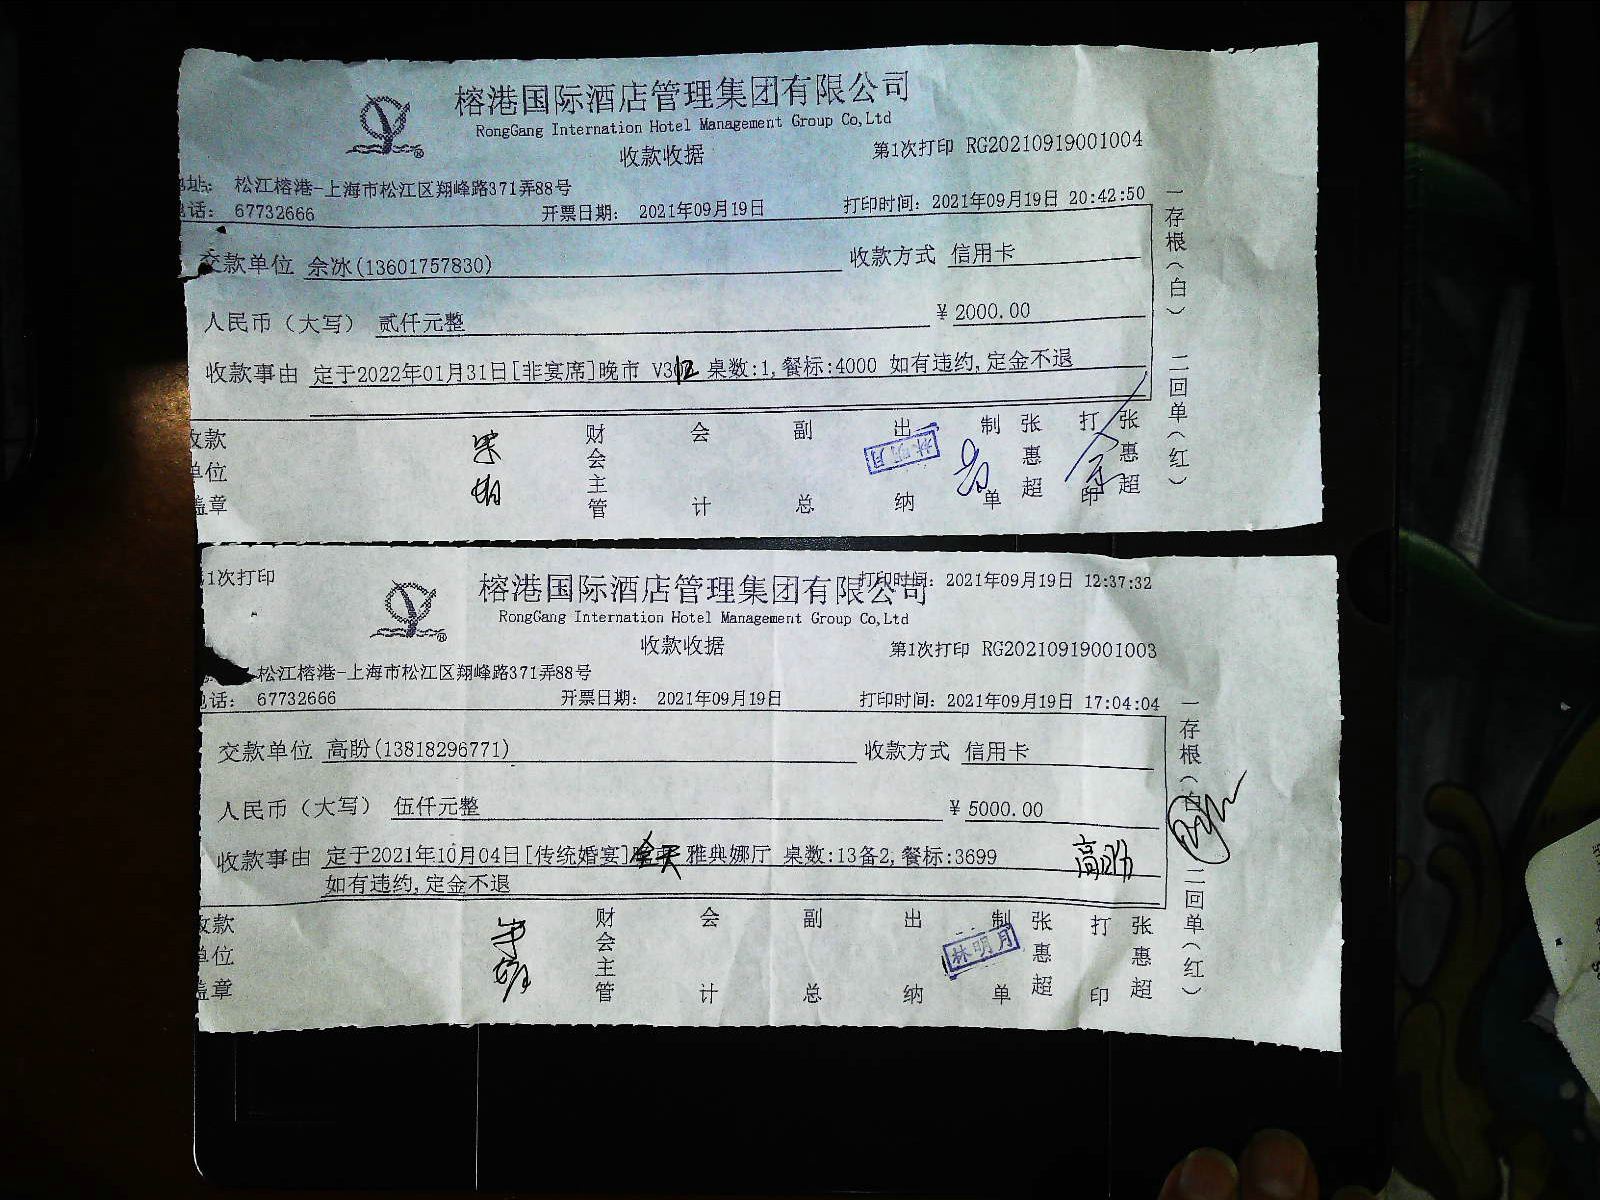 榕港国际酒店管理集团有限公司
RongGang Internation Hotel Management Group Co,Ltd
收款收据 第1次打印 RG20210919001004
址: 松江榕港-上海市松江区翔峰路371弄88号
话: 67732666 开票日期: 2021年09月19日 打印时间: 2021年09月19日 20:42:50
交款单位 佘冰(13601757830) 收款方式 信用卡
人民币（大写） 贰仟元整 ¥ 2000.00
收款事由 定于2022年01月31日[非宴席]晚市 桌数:1,餐标:4000 如有违约,定金不退
收款单位盖章 财会主管 会计 副总 出纳 制单 张惠超 打印 张惠超
林明月
一存根（白） 二回单（红）
1次打印 打印时间: 2021年09月19日 12:37:32
榕港国际酒店管理集团有限公司
RongGang Internation Hotel Management Group Co,Ltd
收款收据 第1次打印 RG20210919001003
松江榕港-上海市松江区翔峰路371弄88号
话: 67732666 开票日期: 2021年09月19日 打印时间: 2021年09月19日 17:04:04
交款单位 高盼(13818296771) 收款方式 信用卡
人民币（大写） 伍仟元整 ¥ 5000.00
收款事由 定于2021年10月04日[传统婚宴]全天 雅典娜厅 桌数:13备2,餐标:3699 高盼
如有违约,定金不退
收款单位盖章 财会主管 会计 副总 出纳 制单 张惠超 打印 张惠超
林明月
一存根（白） 二回单（红）